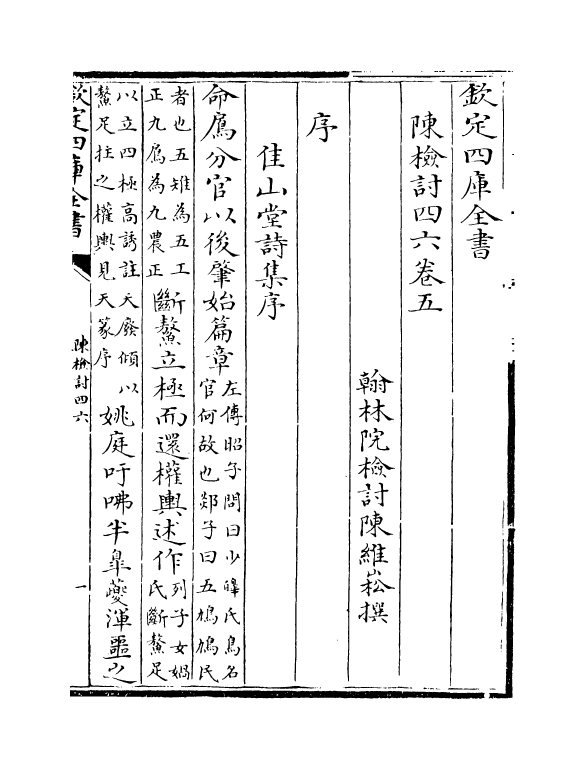 欽定四庫全書
陳檢討四六卷五
翰林院檢討陳維崧撰
序
佳山堂詩集序
命鳸分官以後肇始篇章左傳昭子問曰少皡氏鳥名官何故也郯子曰五鳩鳩民
者也五雉為五工正九鳸為九農正斷鰲立極而還權輿述作列子女媧氏斷鰲足
以立四極高誘註天廢傾以鰲足柱之權輿見天篆序姚庭吁咈半臯夔渾噩之
欽定四庫全書
陳檢討四六
一